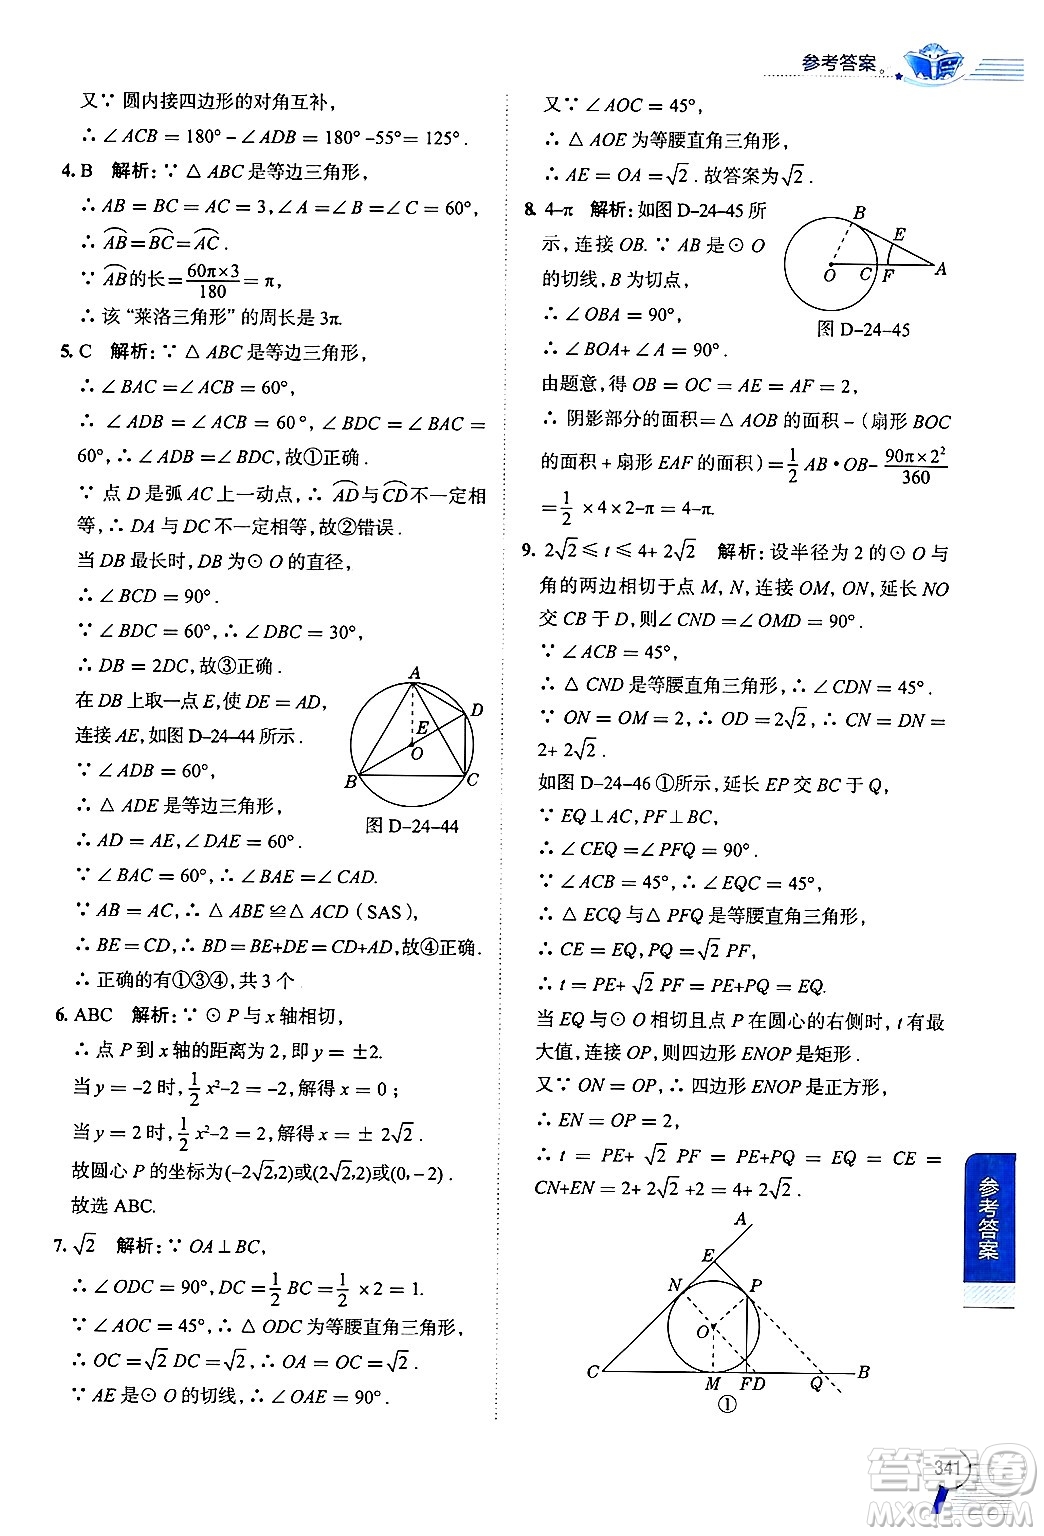 参考答案。
又∵ 圆内接四边形的对角互补，
∴ ∠ACB = 180° – ∠ADB = 180° –55°= 125° .
4. B 解析：∵ △ABC 是等边三角形，
∴ AB = BC = AC = 3, ∠A = ∠B = ∠C = 60°，
∴ A͡B=B͡C=A͡C .
∵ A͡B的长= 60π×3/180 = π，
∴ 该“莱洛三角形”的周长是3π.
5. C 解析：∵ △ABC 是等边三角形，
∴ ∠BAC = ∠ACB = 60°，
∴ ∠ADB = ∠ACB = 60°, ∠BDC = ∠BAC =
60°, ∴ ∠ADB = ∠BDC, 故①正确 .
∵ 点 D 是弧 AC 上一动点，∴ A͡D与C͡D不一定相
等，∴ DA 与 DC 不一定相等，故②错误 .
当 DB 最长时，DB 为⊙O 的直径，
∴ ∠BCD = 90° .
∵ ∠BDC = 60°, ∴ ∠DBC = 30°，
∴ DB = 2DC, 故③正确 .
在 DB 上取一点 E, 使 DE = AD，
连接 AE, 如图 D–24–44 所示 .
∵ ∠ADB = 60°，
∴ △ADE 是等边三角形，
∴ AD = AE, ∠DAE = 60° .
∵ ∠BAC = 60°, ∴ ∠BAE = ∠CAD.
∵ AB = AC, ∴ △ABE ≌△ACD（SAS），
∴ BE = CD, ∴ BD = BE+DE = CD+AD, 故④正确 .
∴ 正确的有①③④，共 3 个 .
A
D
E
O
B
C
图 D–24–44
6. ABC 解析：∵ ⊙P 与 x 轴相切，
∴ 点 P 到 x 轴的距离为 2, 即 y = ±2.
当 y = –2 时，1/2 x²–2 = –2, 解得 x = 0；
当 y = 2 时，1/2 x²–2 = 2, 解得 x = ± 2√2 .
故圆心 P 的坐标为(–2√2,2)或(2√2,2)或(0, – 2) .
故选 ABC.
7. √2 解析：∵ OA⊥BC，
∴ ∠ODC = 90°, DC= 1/2 BC= 1/2 ×2 = 1.
∵ ∠AOC = 45°, ∴ △ODC 为等腰直角三角形，
∴ OC = √2 DC = √2 , ∴ OA = OC = √2 .
∵ AE 是⊙O 的切线，∴ ∠OAE = 90° .
又∵ ∠AOC = 45°，
∴ △AOE 为等腰直角三角形，
∴ AE = OA = √2 . 故答案为√2 .
8. 4–π 解析：如图 D–24–45 所
示，连接 OB. ∵ AB 是⊙O
的切线，B 为切点，
∴ ∠OBA = 90°，
∴ ∠BOA+ ∠A = 90° .
B
E
O
C
F
A
图 D–24–45
由题意，得 OB = OC = AE = AF = 2，
∴ 阴影部分的面积 = △AOB 的面积 –（扇形 BOC
的面积 + 扇形 EAF 的面积）= 1/2 AB·OB– 90π×2²/360
= 1/2 ×4×2–π = 4–π.
9. 2√2 ≤ t ≤ 4+ 2√2 解析：设半径为 2 的⊙O 与
角的两边相切于点 M, N, 连接 OM, ON, 延长 NO
交 CB 于 D, 则∠CND =∠OMD = 90° .
∵ ∠ACB = 45°，
∴ △CND 是等腰直角三角形，∴ ∠CDN = 45° .
∵ ON = OM = 2, ∴ OD = 2√2 , ∴ CN = DN =
2+ 2√2 .
如图 D–24–46 ①所示，延长 EP 交 BC 于 Q，
∵ EQ⊥AC, PF⊥BC，
∴ ∠CEQ = ∠PFQ = 90° .
∵ ∠ACB = 45°, ∴ ∠EQC = 45°，
∴ △ECQ 与△PFQ 是等腰直角三角形，
∴ CE = EQ, PQ = √2 PF，
∴ t = PE+ √2 PF = PE+PQ = EQ.
当 EQ 与⊙O 相切且点 P 在圆心的右侧时，t 有最
大值，连接 OP, 则四边形 ENOP 是矩形 .
又∵ ON = OP, ∴ 四边形 ENOP 是正方形，
∴ EN = OP = 2，
∴ t = PE+ √2 PF = PE+PQ = EQ = CE =
CN+EN = 2+ 2√2 +2 = 4+ 2√2 .
A
E
N
P
O
C
M
F
D
Q
B
①
参考答案
341
答案圈
MXQE.COM